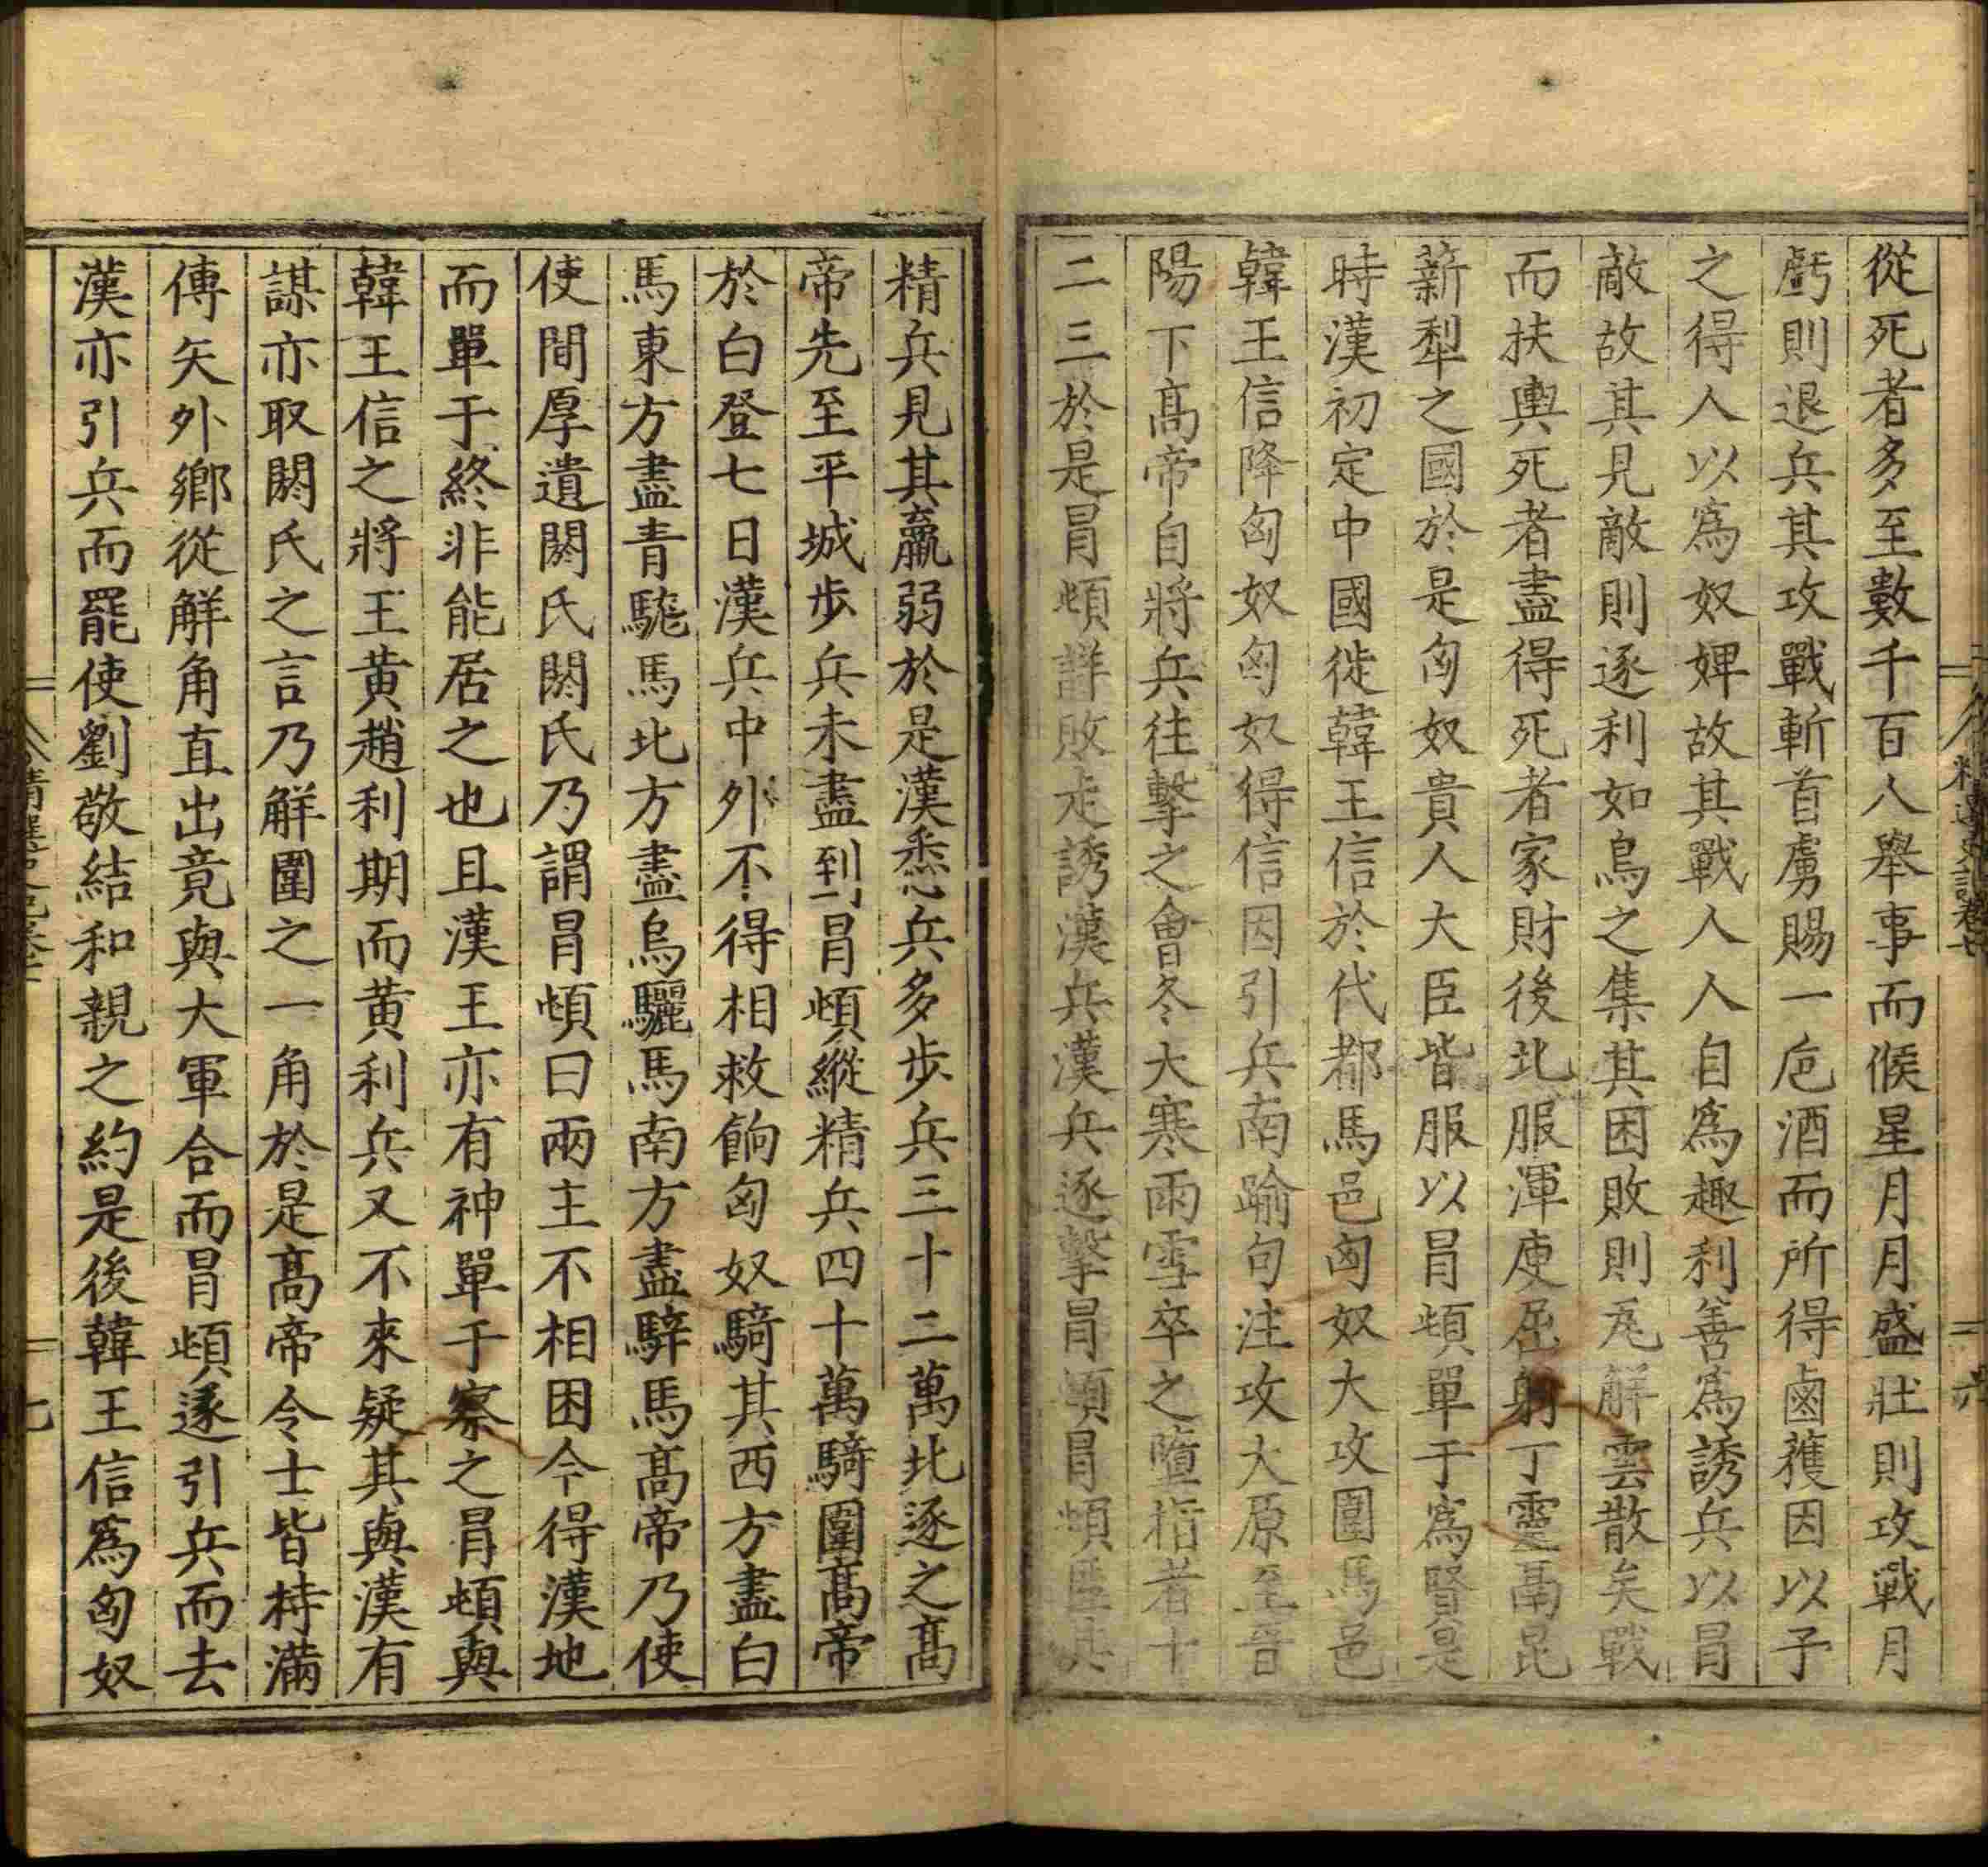 從死者多至數千百人舉事而候星月月盛壯則攻戰月
虧則退兵其攻戰斬首虜賜一巵酒而所得鹵獲因以予
之得人以爲奴婢故其戰人人自爲趣利善爲誘兵以冒
敵故其見敵則逐利如鳥之集其困敗則瓦解雲散矣戰
而扶輿死者盡得死者家財後北服渾庾屈射丁靈鬲昆
薪犁之國於是匈奴貴人大臣皆服以冒頓單于爲賢是
時漢初定中國徙韓王信於代都馬邑匈奴大攻圍馬邑
韓王信降匈奴匈奴得信因引兵南踰句注攻大原至晉
陽下高帝自將兵往擊之會冬大寒雨雪卒之墮指者十
二三於是冒頓詳敗走誘漢兵漢兵逐擊冒頓冒頓匿其
精兵見其羸弱於是漢悉兵多步兵三十二萬北逐之高
帝先至平城步兵未盡到冒頓縱精兵四十萬騎圍高帝
於白登七日漢兵中外不得相救餉匈奴騎其西方盡白
馬東方盡青駹馬北方盡烏驪馬南方盡騂馬高帝乃使
使間厚遺閼氏閼氏乃謂冒頓曰兩主不相困今得漢地
而單于終非能居之也且漢王亦有神單于察之冒頓與
韓王信之將王黄趙利期而黄利兵又不來疑其與漢有
謀亦取閼氏之言乃解圍之一角於是高帝令士皆持滿
傅矢外鄉從解角直出竟與大軍合而冒頓遂引兵而去
漢亦引兵而罷使劉敬結和親之約是後韓王信爲匈奴